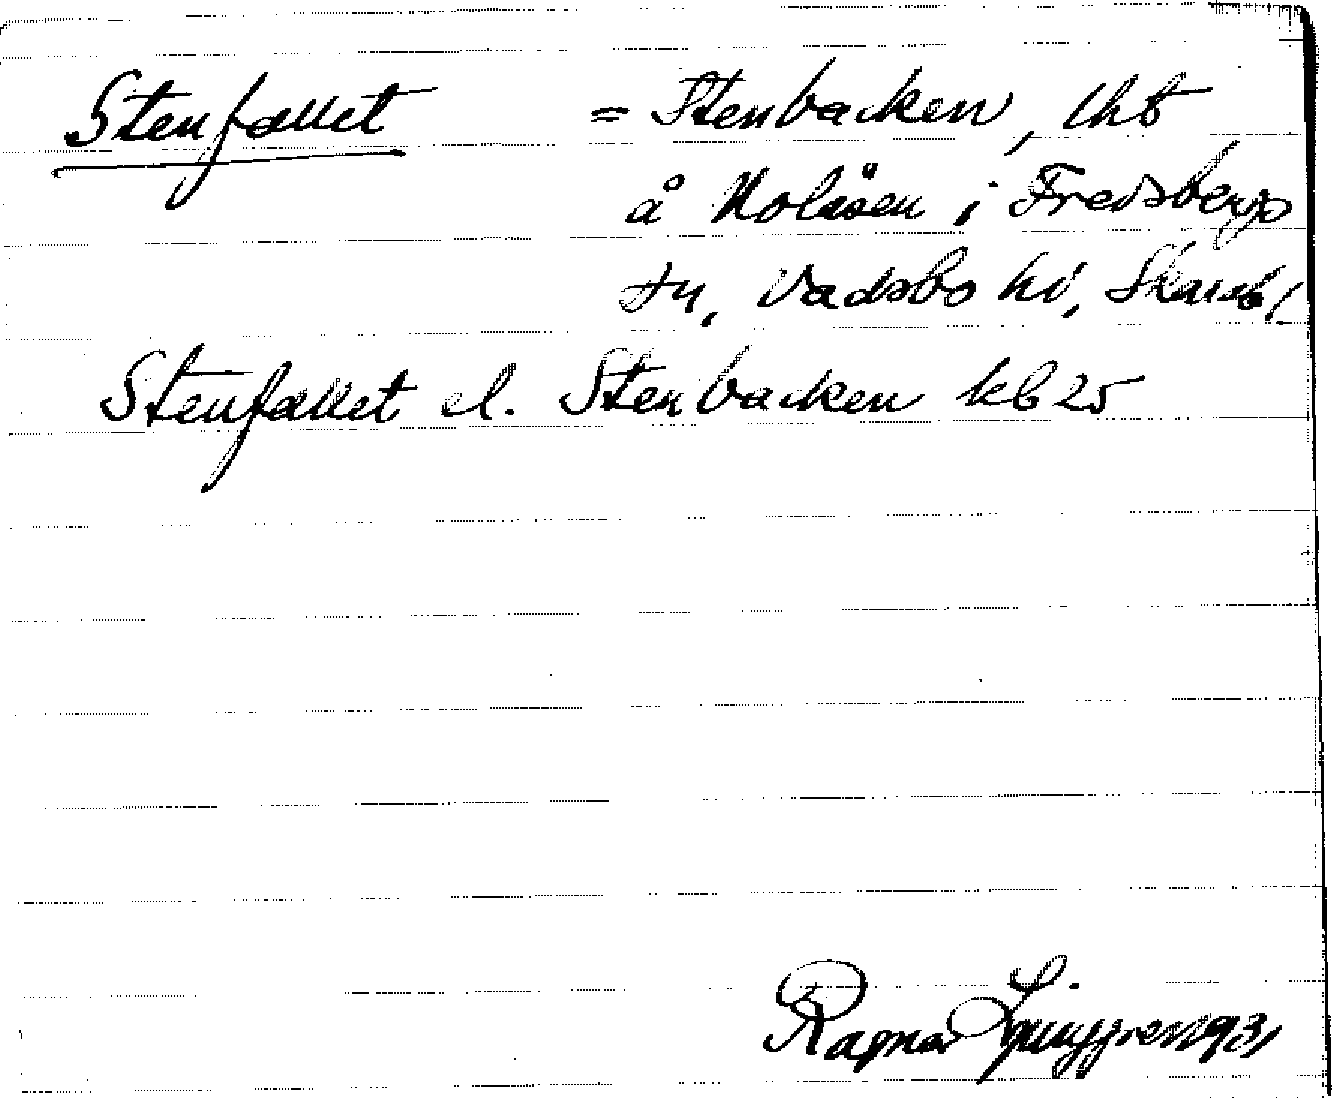 Stenfallet = Stenbacken, lht
å Holåsen i Fredsbergs
sn, Vadsbo hd, Skarab l.
Stenfallet el. Stenbacken kb 25
Ragnar Ljunggren 1931